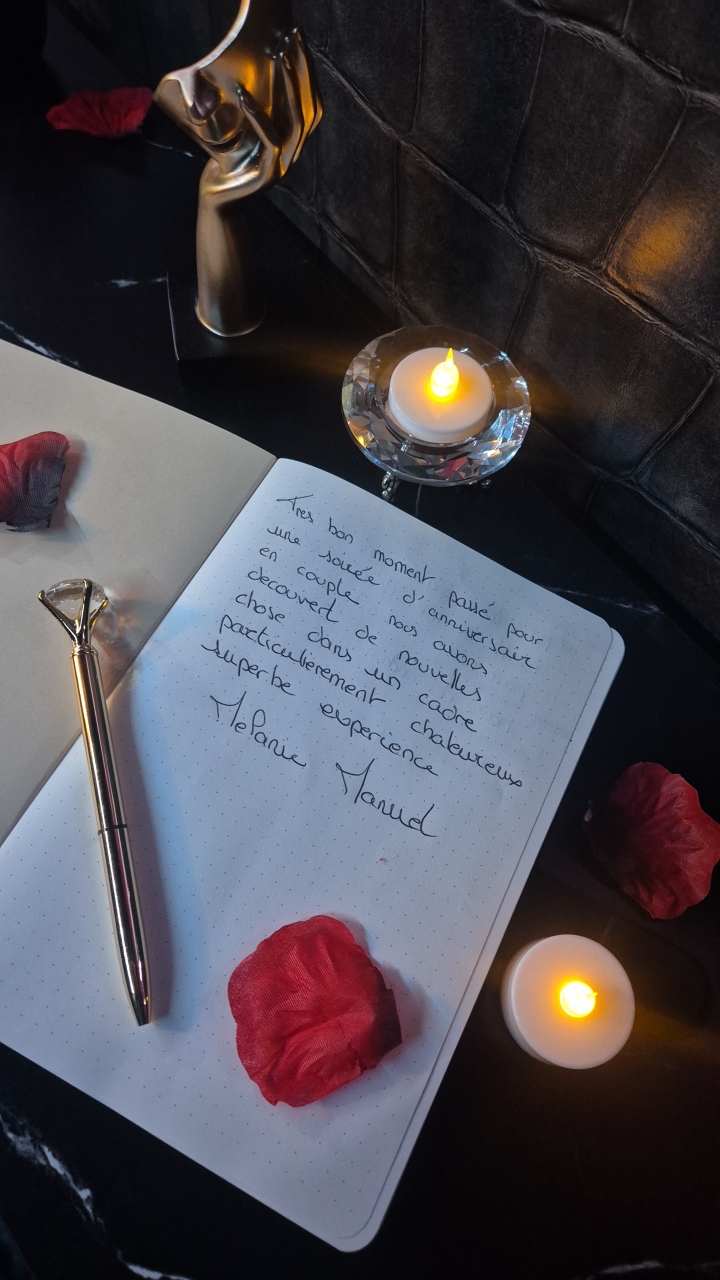 Tres bon moment passé pour
une soirée d'anniversair
en couple nous avons
decouvert de nouvelles
chose dans un cadre
particulierement chaleureux
superbe experience
Melanie Manuel